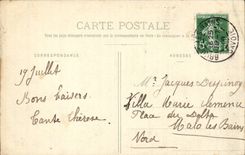 CARTE POSTALE
CORRESPONDANCE
ADRESSE
19 Juillet
Bons baisers
Tante Thérèse
Mr Jacques Despinoy
Villa Marie Clémence
Place du Delta
Malo les Bains
Nord